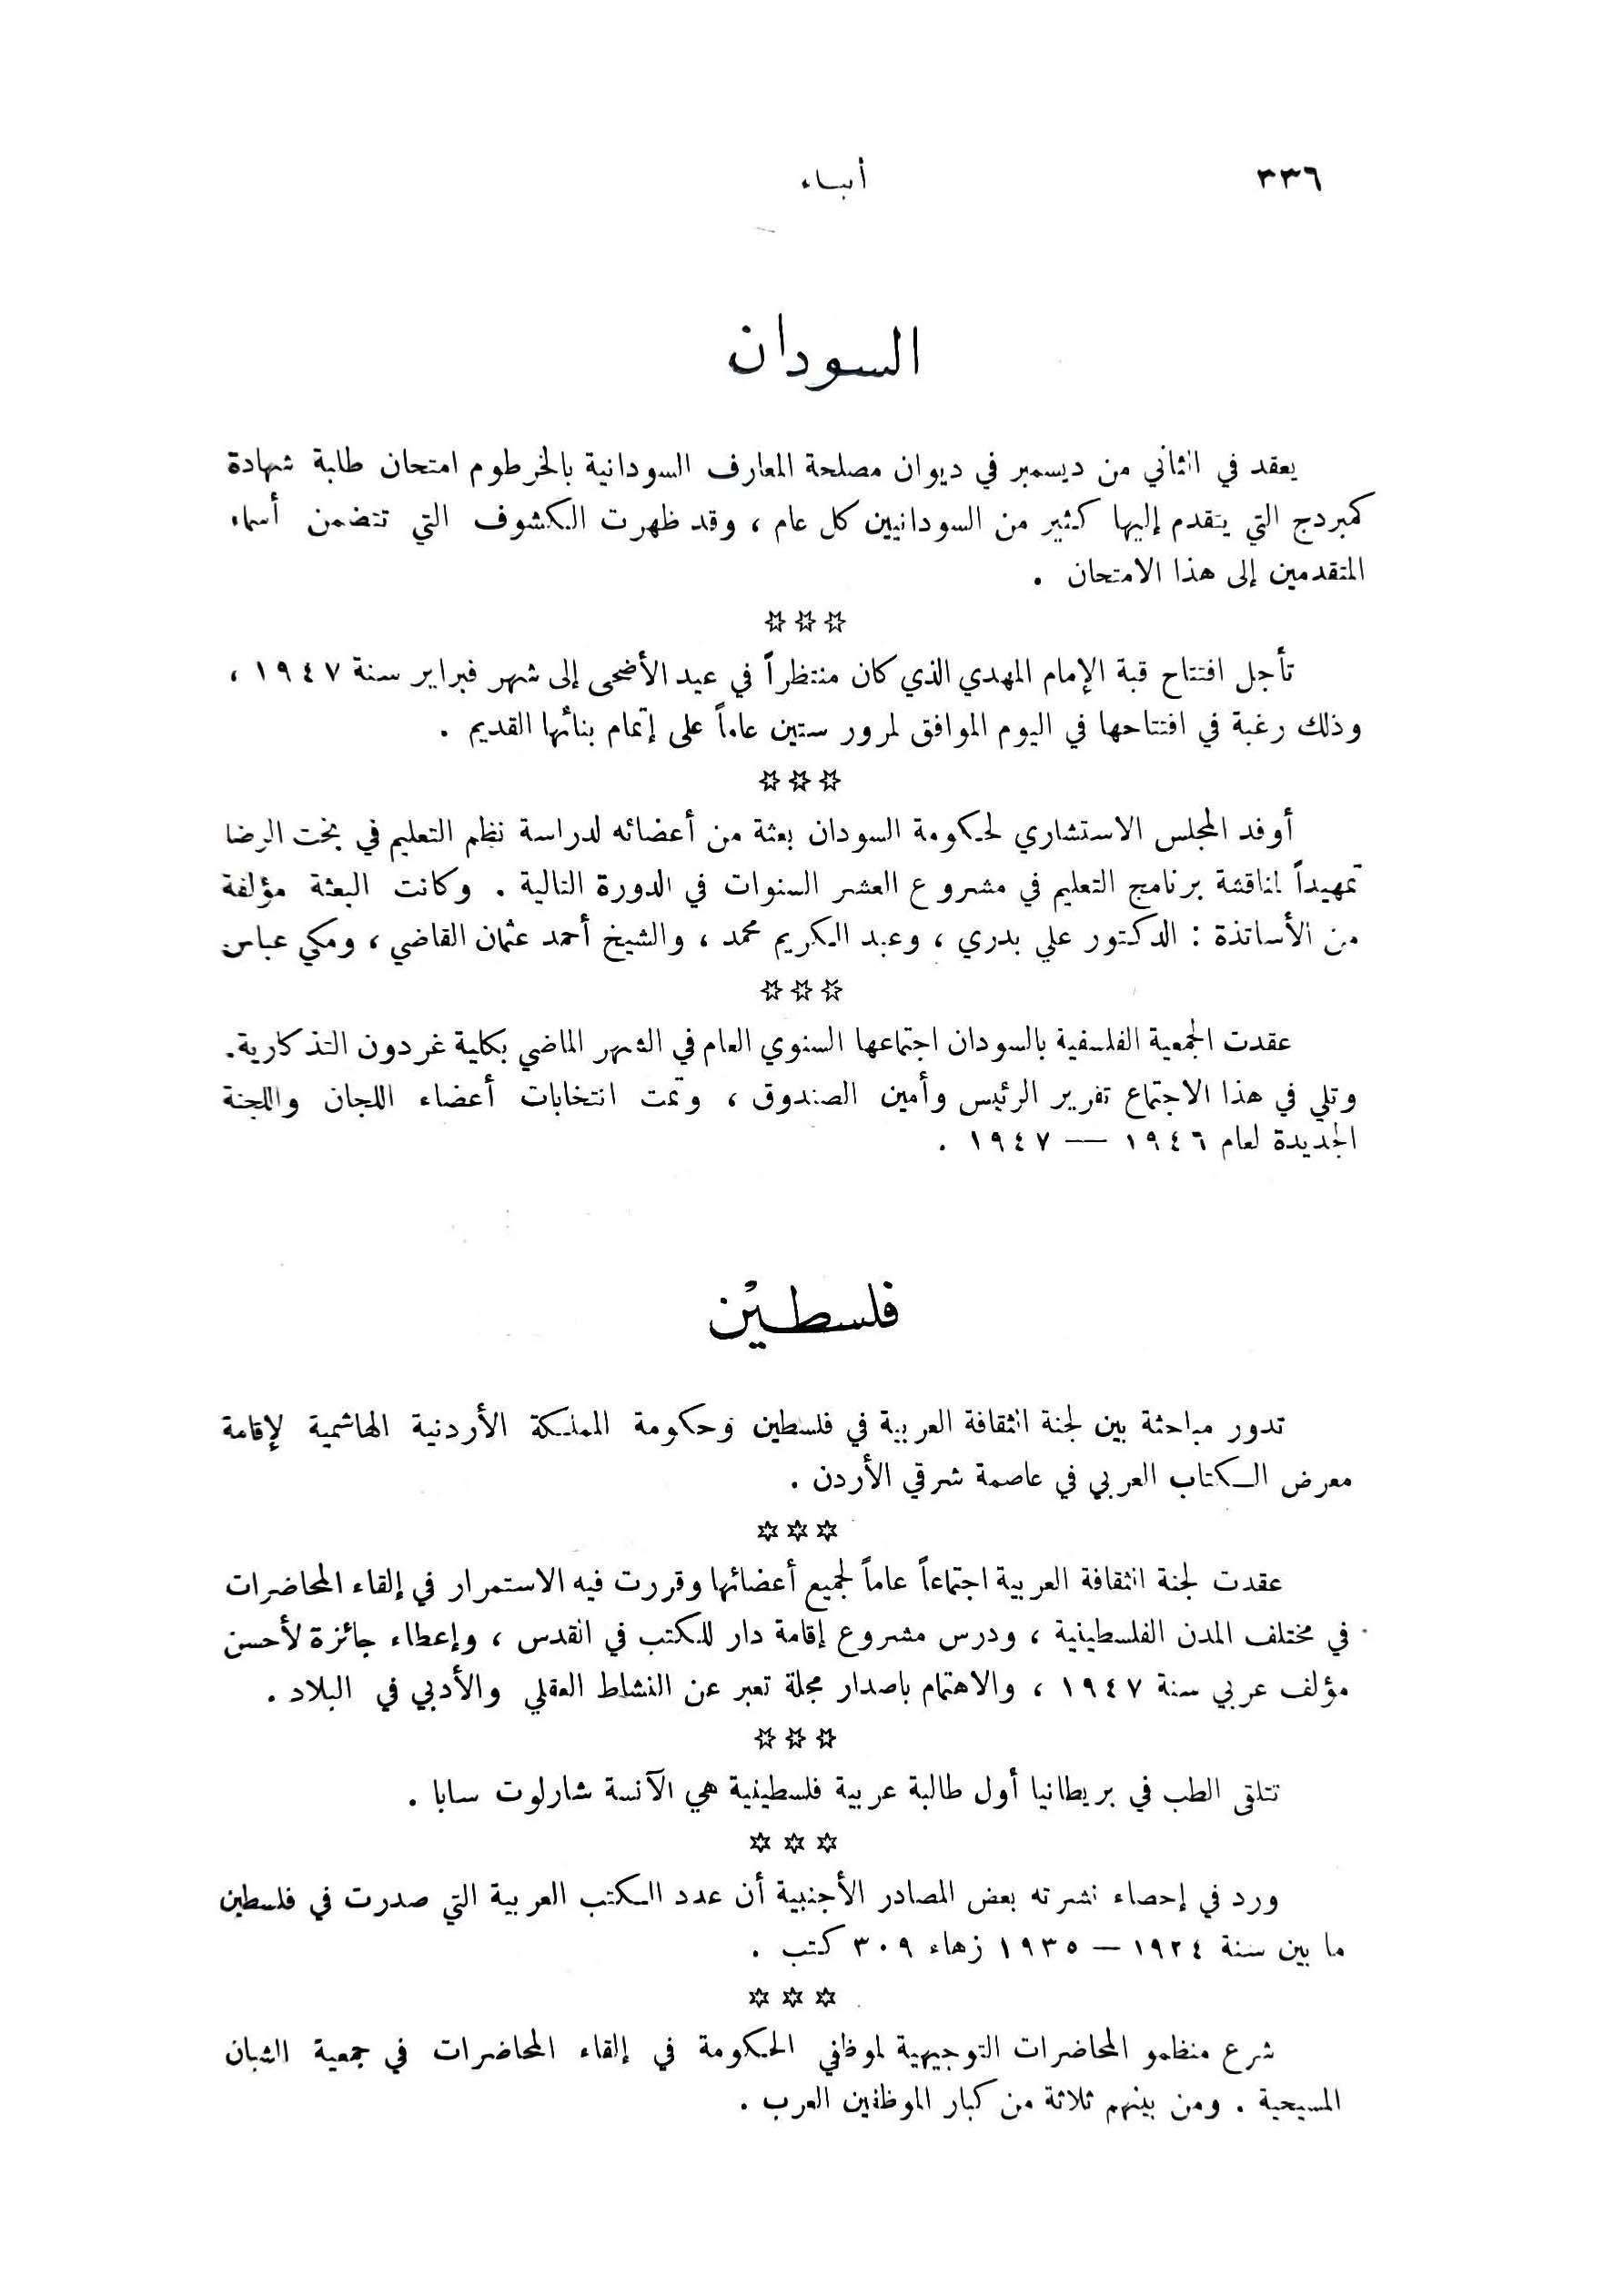 ٣٣٦
أنباء
السودان
يعقد في الثاني من ديسمبر في ديوان مصلحة المعارف السودانية بالخرطوم امتحان طلبة شهادة
كمبردج التي يتقدم إليها كثير من السودانيين كل عام ، وقد ظهرت الكشوف التي تتضمن أسماء
المتقدمين إلى هذا الامتحان .
✲✲✲
تأجل افتتاح قبة الإمام المهدي الذي كان منتظراً في عيد الأضحى إلى شهر فبراير سنة ١٩٤٧ ،
وذلك رغبة في افتتاحها في اليوم الموافق لمرور ستين عاماً على إتمام بنائها القديم .
✲✲✲
أوفد المجلس الاستشاري لحكومة السودان بعثة من أعضائه لدراسة نظم التعليم في بخت الرضا
تمهيداً لمناقشة برنامج التعليم في مشروع العشر السنوات في الدورة التالية . وكانت البعثة مؤلفة
من الأساتذة : الدكتور علي بدري ، وعبد الكريم محمد ، والشيخ أحمد عثمان القاضي ، ومكي عباس
✲✲✲
عقدت الجمعية الفلسفية بالسودان اجتماعها السنوي العام في الشهر الماضي بكلية غردون التذكارية.
وتلي في هذا الاجتماع تقرير الرئيس وأمين الصندوق ، وتمت انتخابات أعضاء اللجان واللجنة
الجديدة لعام ١٩٤٦ — ١٩٤٧ .
فلسطين
تدور مباحثة بين لجنة الثقافة العربية في فلسطين وحكومة المملكة الأردنية الهاشمية لإقامة
معرض الكتاب العربي في عاصمة شرقي الأردن .
✲✲✲
عقدت لجنة الثقافة العربية اجتماعاً عاماً لجميع أعضائها وقررت فيه الاستمرار في إلقاء المحاضرات
في مختلف المدن الفلسطينية ، ودرس مشروع إقامة دار للكتب في القدس ، وإعطاء جائزة لأحسن
مؤلف عربي سنة ١٩٤٧ ، والاهتمام باصدار مجلة تعبر عن النشاط العقلي والأدبي في البلاد .
✲✲✲
تتلقى الطب في بريطانيا أول طالبة عربية فلسطينية هي الآنسة شارلوت سابا .
✲✲✲
ورد في إحصاء نشرته بعض المصادر الأجنبية أن عدد الكتب العربية التي صدرت في فلسطين
ما بين سنة ١٩٢٤ — ١٩٣٥ زهاء ٣٠٩ كتب .
✲✲✲
شرع منظمو المحاضرات التوجيهية لموظفي الحكومة في إلقاء المحاضرات في جمعية الشبان
المسيحية . ومن بينهم ثلاثة من كبار الموظفين العرب .